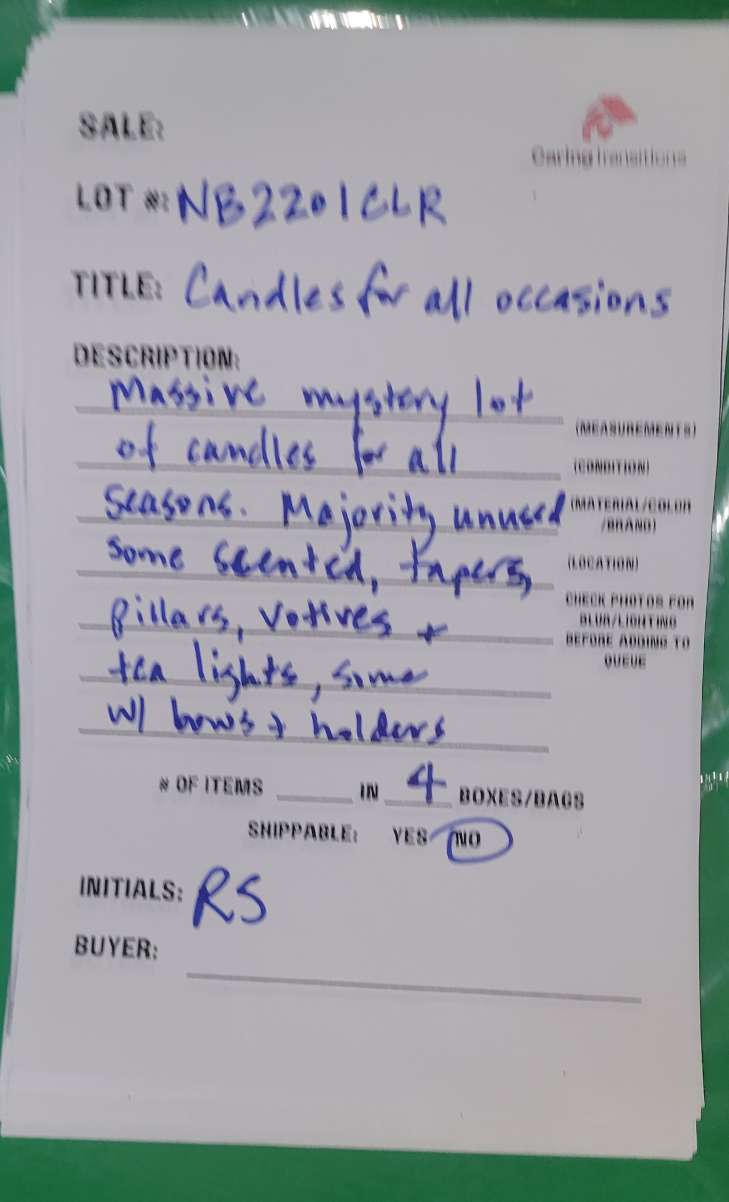 SALE:
CaringTransitions
LOT #: NB2201CLR
TITLE: Candles for all occasions
DESCRIPTION:
Massive mystery lot
(MEASUREMENTS)
of candles for all
(CONDITION)
seasons. Majority unused
(MATERIAL/COLOR
/BRAND)
some scented, tapers,
(LOCATION)
pillars, votives +
CHECK PHOTOS FOR
BLUR/LIGHTING
BEFORE ADDING TO
QUEUE
tea lights, some
w/ bows + holders
# OF ITEMS IN 4 BOXES/BAGS
SHIPPABLE: YES NO
INITIALS: RS
BUYER: